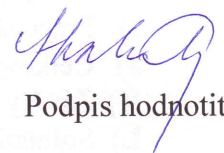 Podpis hodnotit